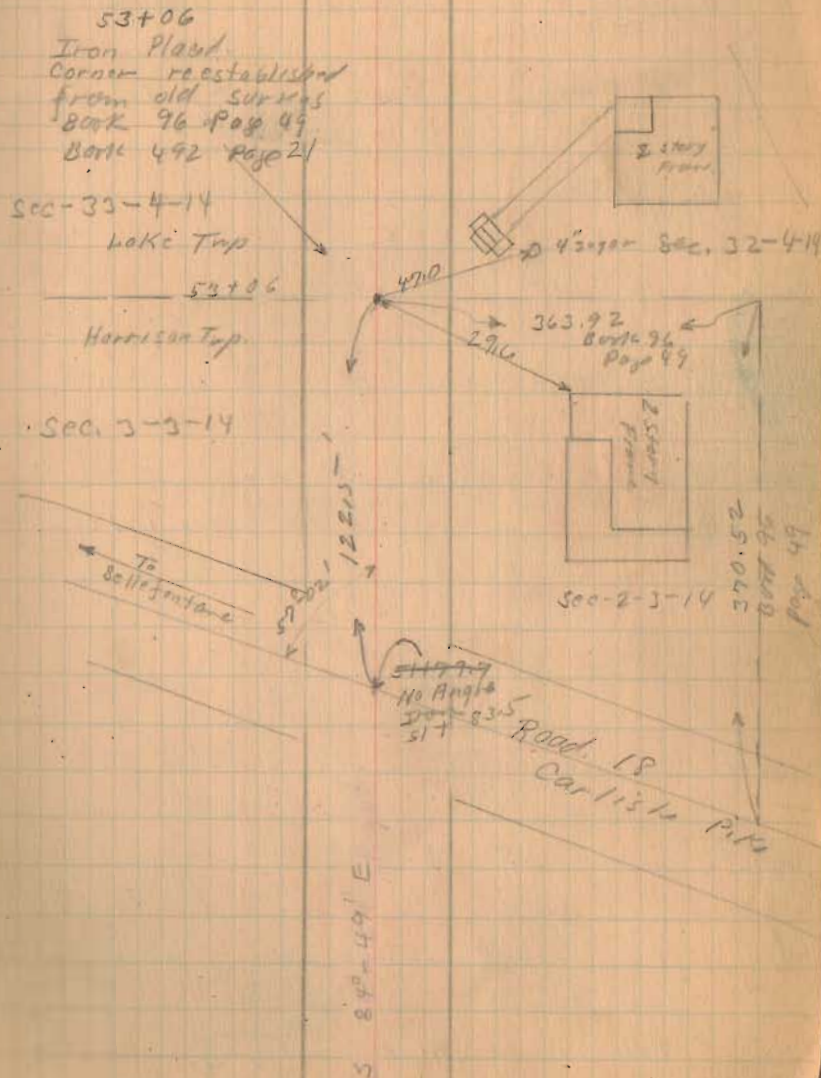 53+06
Iron Placed
Corner reestablished
from old surveys
Book 96 Page 49
Book 492 Page 21
Sec-33-4-14
Lake Twp
53+06
Harrison Twp.
Sec. 3-3-14
2 story
Frame
4" sugar Sec. 32-4-14
47.0
363.92
Book 96
Page 49
29.6
2 Story
Frame
122.5'
370.52
Book 96
Page 49
Sec-2-3-14
To
Bellefontaine
57°-02'
No Angle
Iron
51+ 83.5
Road 18
Carlisle Pike
S 84°-49' E